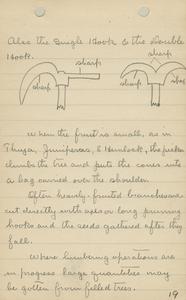 Also the Single Hook & the Double
Hook.
sharp
sharp
sharp
sharp
When the fruit is small, as in
Thuya, Juniperus, & Hemlock, the picker
climbs the tree and puts the cones into
a bag carried over the shoulder.
Often heavily-fruited branches are
cut directly with axe or long pruning
hooks and the seeds gathered after they
fall.
Where lumbering operations are
in progress large quantities may
be gotten from felled trees.
19